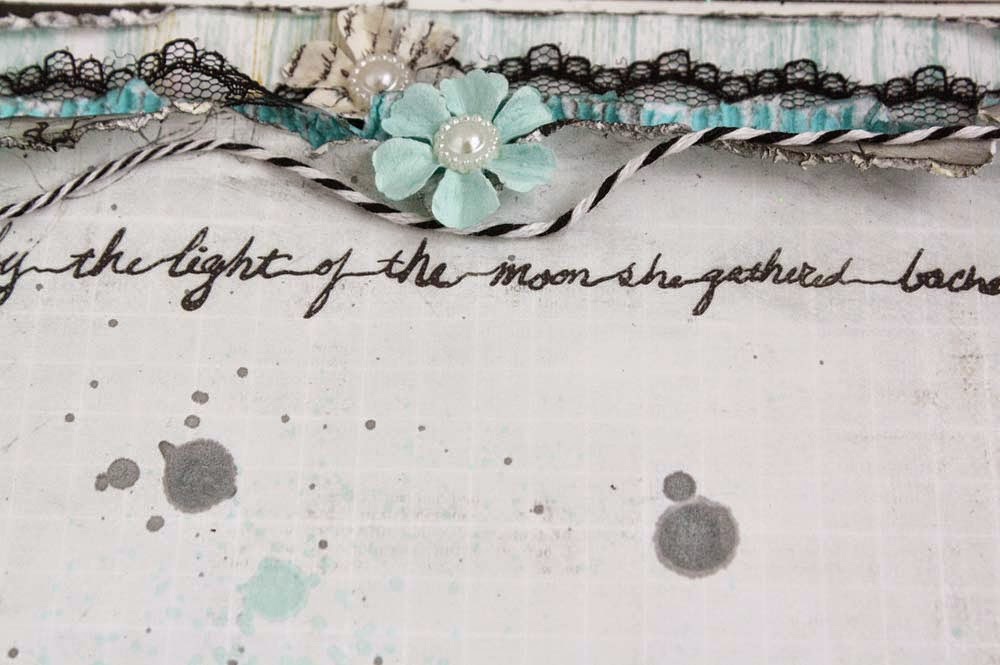 by the light of the moon she gathered bache